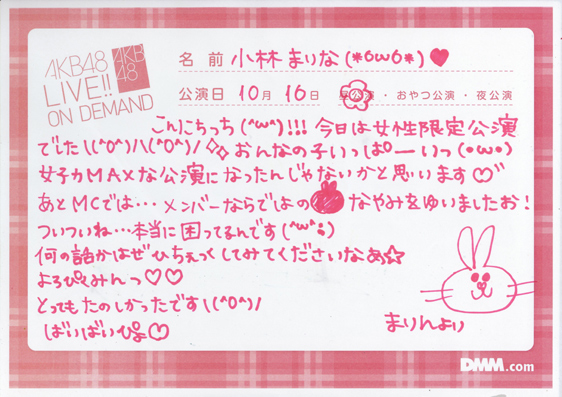 AKB48
LIVE!!
ON DEMAND
AKB
48
名前 小林まりな(*δωδ*)♥
公演日 10月 16日 昼公演・おやつ公演・夜公演
こんにちっち(^ω^)!!! 今日は女性限定公演
でした\(^O^)/\(^O^)/✧✧おんなの子いっぱーいっ(•ω•)
女子力MAXな公演になったんじゃないかと思います♡
あとMCでは…メンバーならではの なやみをゆいましたお!
ついついね…本当に困ってるんです(^ω^;)
何の話かはぜひちぇっくしてみてくださいなあ☆
よろぴくみんっ♡♡
とってもたのしかったです\(^O^)/
ばいばいぴよ♡
まりんより
DMM.com